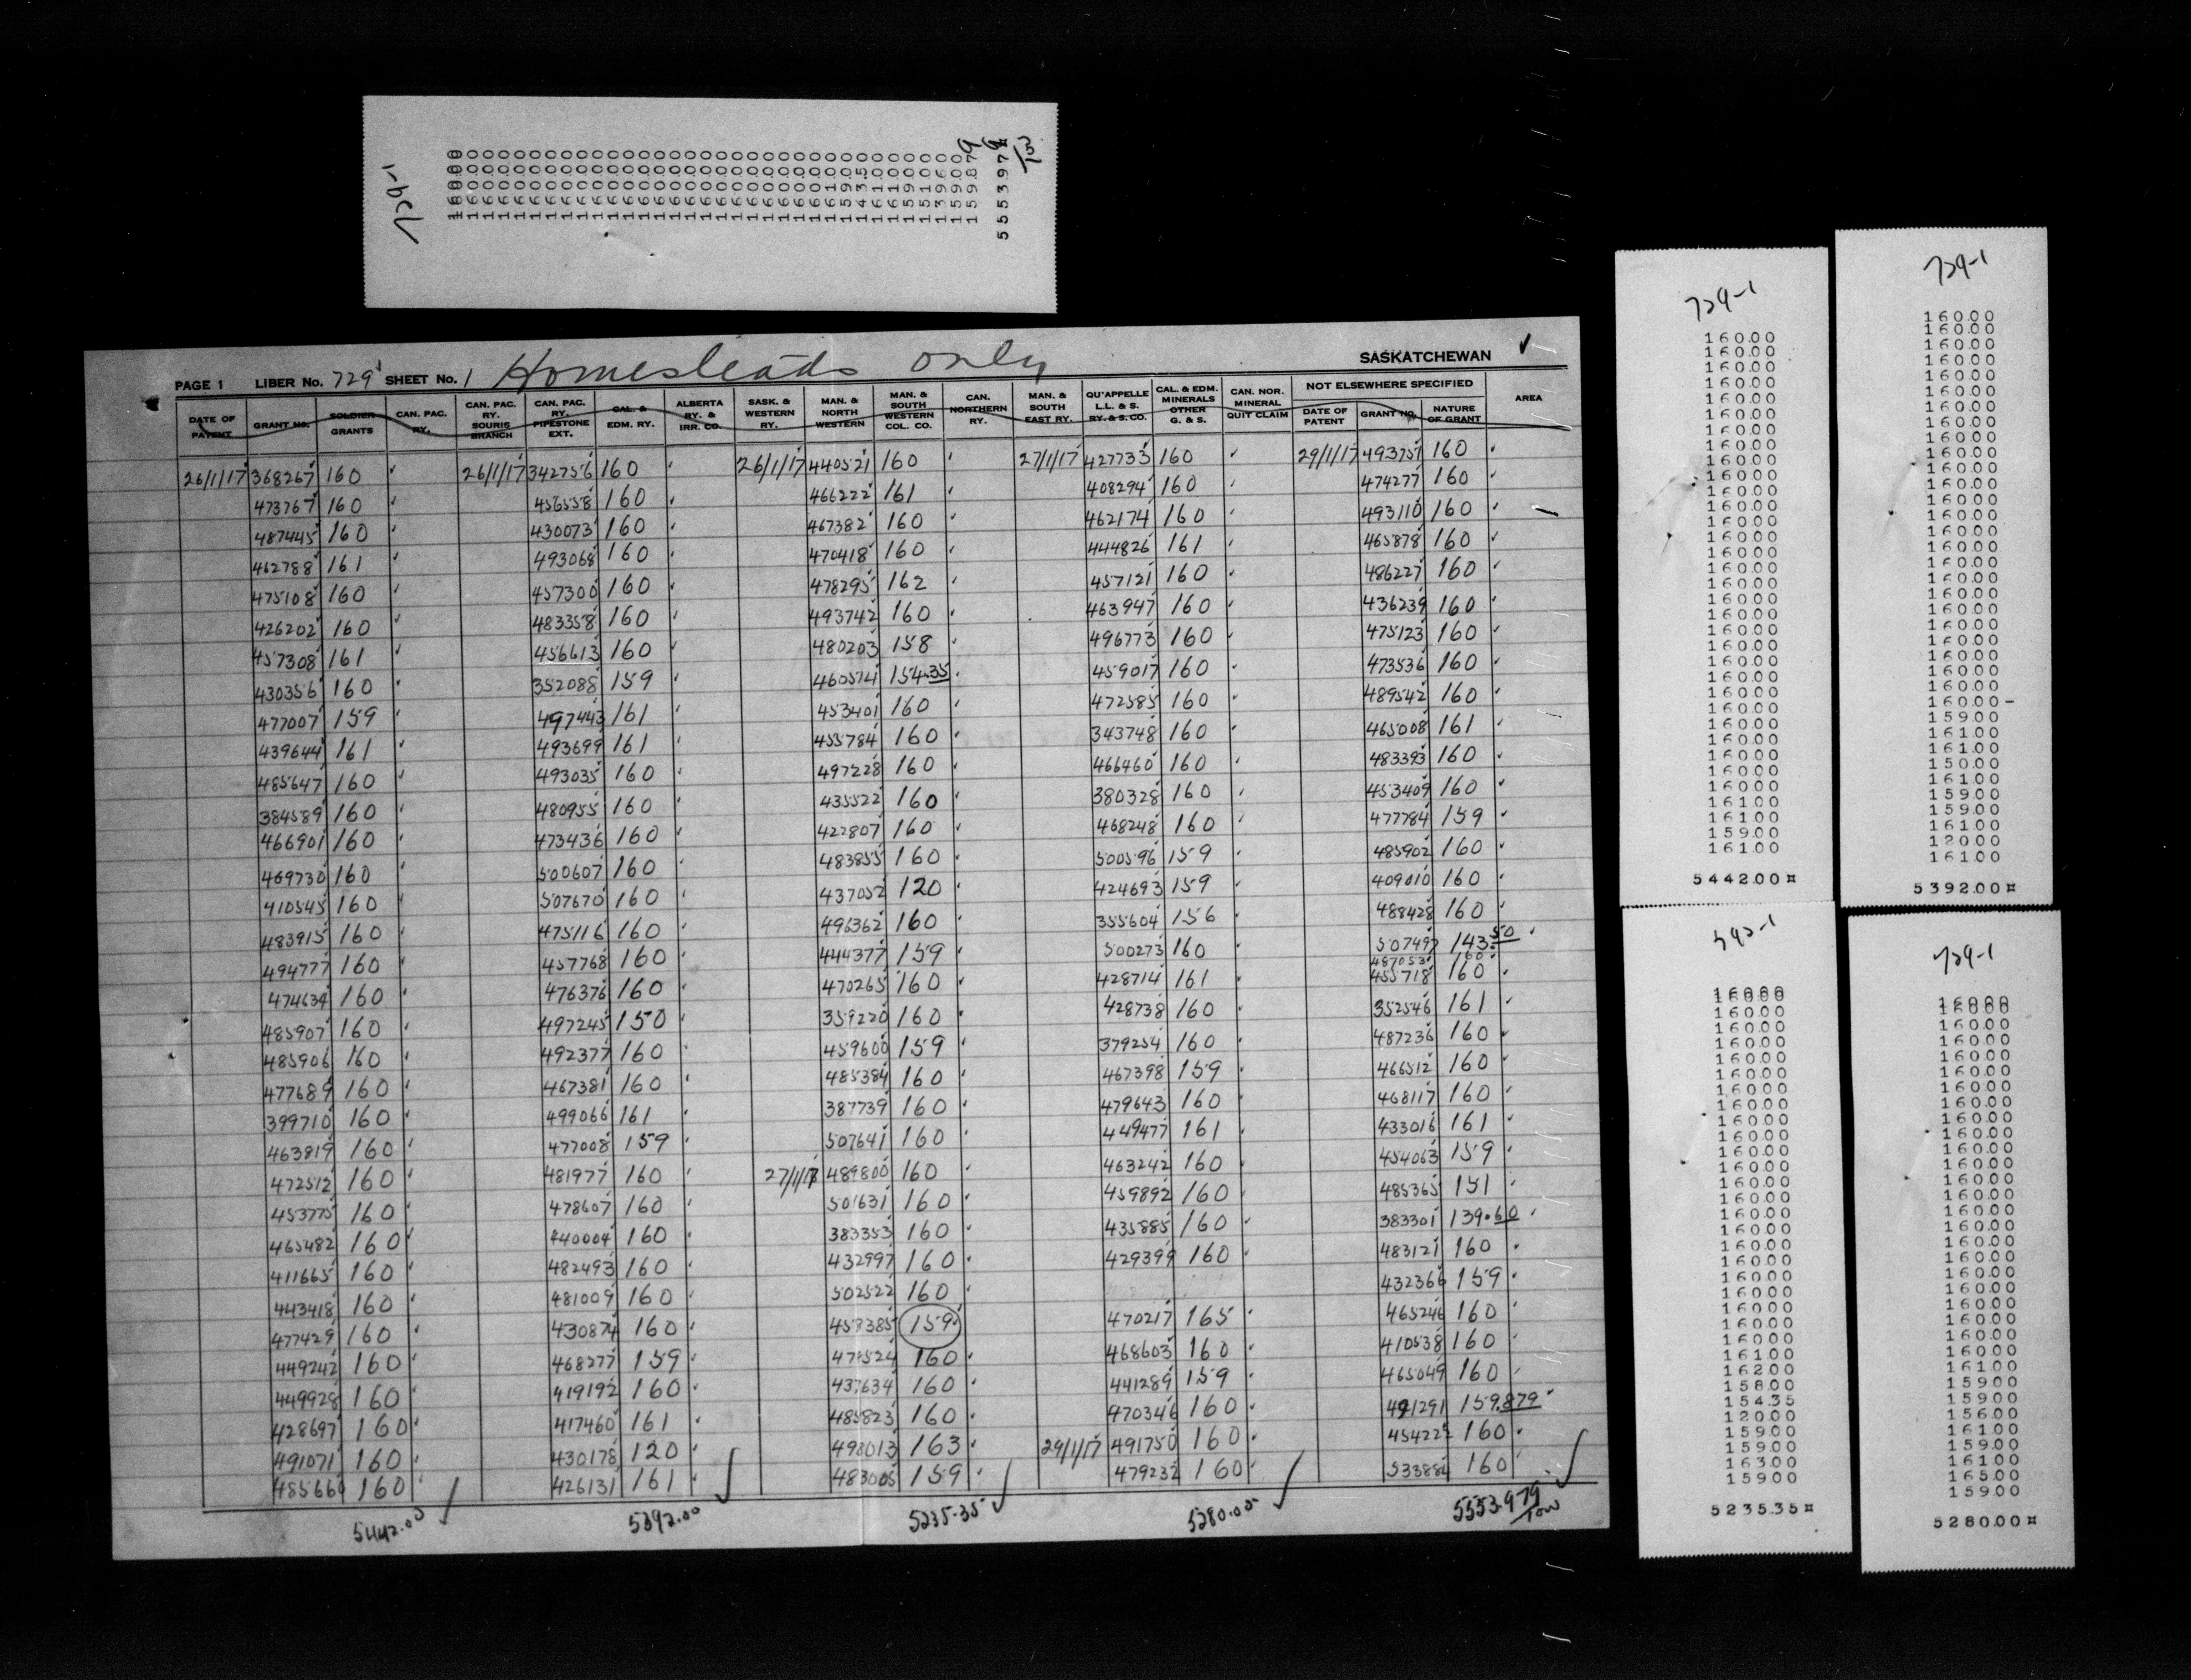 729-1
160.00
160.00
160.00
160.00
160.00
160.00
160.00
160.00
160.00
160.00
160.00
160.00
160.00
160.00
160.00
160.00
160.00
160.00
160.00
160.00
160.00
160.00
160.00
161.00
159.00
143.5
161.00
161.00
159.00
151.00
139.60
159.00
159.879
5553.979
100
PAGE 1 LIBER No. 729 SHEET No. 1 Homesteads only SASKATCHEWAN
DATE OF PATENT GRANT NO. SOLDIER GRANTS CAN. PAC. RY. CAN. PAC. RY. SOURIS BRANCH CAN. PAC. RY. PIPESTONE EXT. CAL. & EDM. RY. ALBERTA RY. & IRR. CO. SASK. & WESTERN RY. MAN. & NORTH WESTERN MAN. & SOUTH WESTERN COL. CO. CAN. NORTHERN RY. MAN. & SOUTH EAST RY. QU'APPELLE L.L. & S. RY. & S. CO. CAL. & EDM. MINERALS OTHER G. & S. CAN. NOR. MINERAL QUIT CLAIM NOT ELSEWHERE SPECIFIED DATE OF PATENT GRANT NO. NATURE OF GRANT AREA
26/1/17 368267 160 26/1/17 342756 160 26/1/17 440521 160 27/1/17 427733 160 29/1/17 493751 160
473767 160 456558 160 466222 161 408294 160 474277 160
487445 160 430073 160 467382 160 462174 160 493110 160
462788 161 493068 160 470418 160 444826 161 465878 160
475108 160 457300 160 478295 162 457121 160 486227 160
426202 160 483358 160 493742 160 463947 160 436239 160
457308 161 456613 160 480203 158 496773 160 475123 160
430356 160 352088 159 460574 154.35 459017 160 473536 160
477007 159 497443 161 453401 160 472585 160 489542 160
439644 161 493699 161 455784 160 343748 160 465008 161
485647 160 493035 160 497228 160 466460 160 483393 160
384589 160 480955 160 435522 160 380328 160 453409 160
466901 160 473436 160 422807 160 468248 160 477784 159
469730 160 500607 160 483855 160 500596 159 485902 160
410545 160 507670 160 437052 120 424693 159 409010 160
483915 160 475116 160 496362 160 355604 156 488428 160
494777 160 457768 160 444377 159 500273 160 507497 143.50
487053 160
474634 160 476376 160 470265 160 428714 161 455718 160
485907 160 497245 150 359220 160 428738 160 352546 161
485906 160 492377 160 459600 159 379254 160 487236 160
477689 160 467381 160 485384 160 467398 159 466512 160
399710 160 499066 161 387739 160 479643 160 468117 160
463819 160 477008 159 507641 160 449477 161 433016 161
472512 160 481977 160 27/1/17 489800 160 463242 160 454063 159
453775 160 478607 160 501631 160 459892 160 485365 151
465482 160 440004 160 383353 160 435885 160 383301 139.60
411665 160 482493 160 432997 160 429399 160 483121 160
443418 160 481009 160 502522 160 432366 159
477429 160 430874 160 458385 159 470217 165 465246 160
449242 160 468277 159 160 468603 160 410538 160
449928 160 419192 160 437634 160 441289 159 465049 160
428697 160 417460 161 485823 160 470346 160 491291 159.879
491071 160 430178 120 498013 163 29/1/17 491750 160 454222 160
485660 160 426131 161 483005 159 479232 160 533884 160
5442.00 5392.00 5235.35 5280.00 5553.979
100
729-1
160.00
160.00
160.00
160.00
160.00
160.00
160.00
160.00
160.00
160.00
160.00
160.00
160.00
160.00
160.00
160.00
160.00
160.00
160.00
160.00
160.00
160.00
160.00
160.00
160.00
160.00
160.00
160.00
160.00
160.00
161.00
161.00
159.00
161.00
5442.00¤
729-1
160.00
160.00
160.00
160.00
160.00
160.00
160.00
160.00
160.00
160.00
160.00
160.00
160.00
160.00
160.00
160.00
160.00
160.00
160.00
160.00
160.00
160.00
160.00
160.00
160.00
160.00-
159.00
161.00
161.00
150.00
161.00
159.00
159.00
161.00
120.00
161.00
5392.00¤
160.00
160.00
160.00
160.00
160.00
160.00
160.00
160.00
160.00
160.00
160.00
160.00
160.00
160.00
160.00
160.00
160.00
160.00
160.00
160.00
160.00
160.00
160.00
161.00
162.00
158.00
154.35
120.00
159.00
159.00
163.00
159.00
5235.35¤
729-1
160.00
160.00
160.00
160.00
160.00
160.00
160.00
160.00
160.00
160.00
160.00
160.00
160.00
160.00
160.00
160.00
160.00
160.00
160.00
160.00
160.00
160.00
160.00
161.00
159.00
159.00
156.00
161.00
159.00
161.00
165.00
159.00
5280.00¤